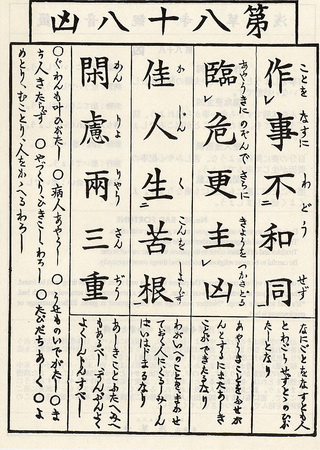 第八十八凶
ことを なすに わ どう せず
作事不和同
なにごとをなすとも人
とわごうせずとゝのひが
たしとなり
あやうきに のぞんで さらに きょうを つかさどる
臨危更主凶
あやうきことをふせが
んとするにまたあしき
ことができたるなり
か じん こんを しょうず
佳人生苦根
わがいへのことをまかせ
ておく人にくるしみ
はじまるなり
かん りよ りやう さん ぢう
閑慮兩三重
あしきことふたへみへ
もあるべし
しんすべし
○ぐわんも叶ひがたし ○病人あやうし ○うせものいでがたし ○ま
ち人きたらず ○やづくりひきこしわろし ○たびだちあしく ○よ
めとりむことり人をかゝへるわろし